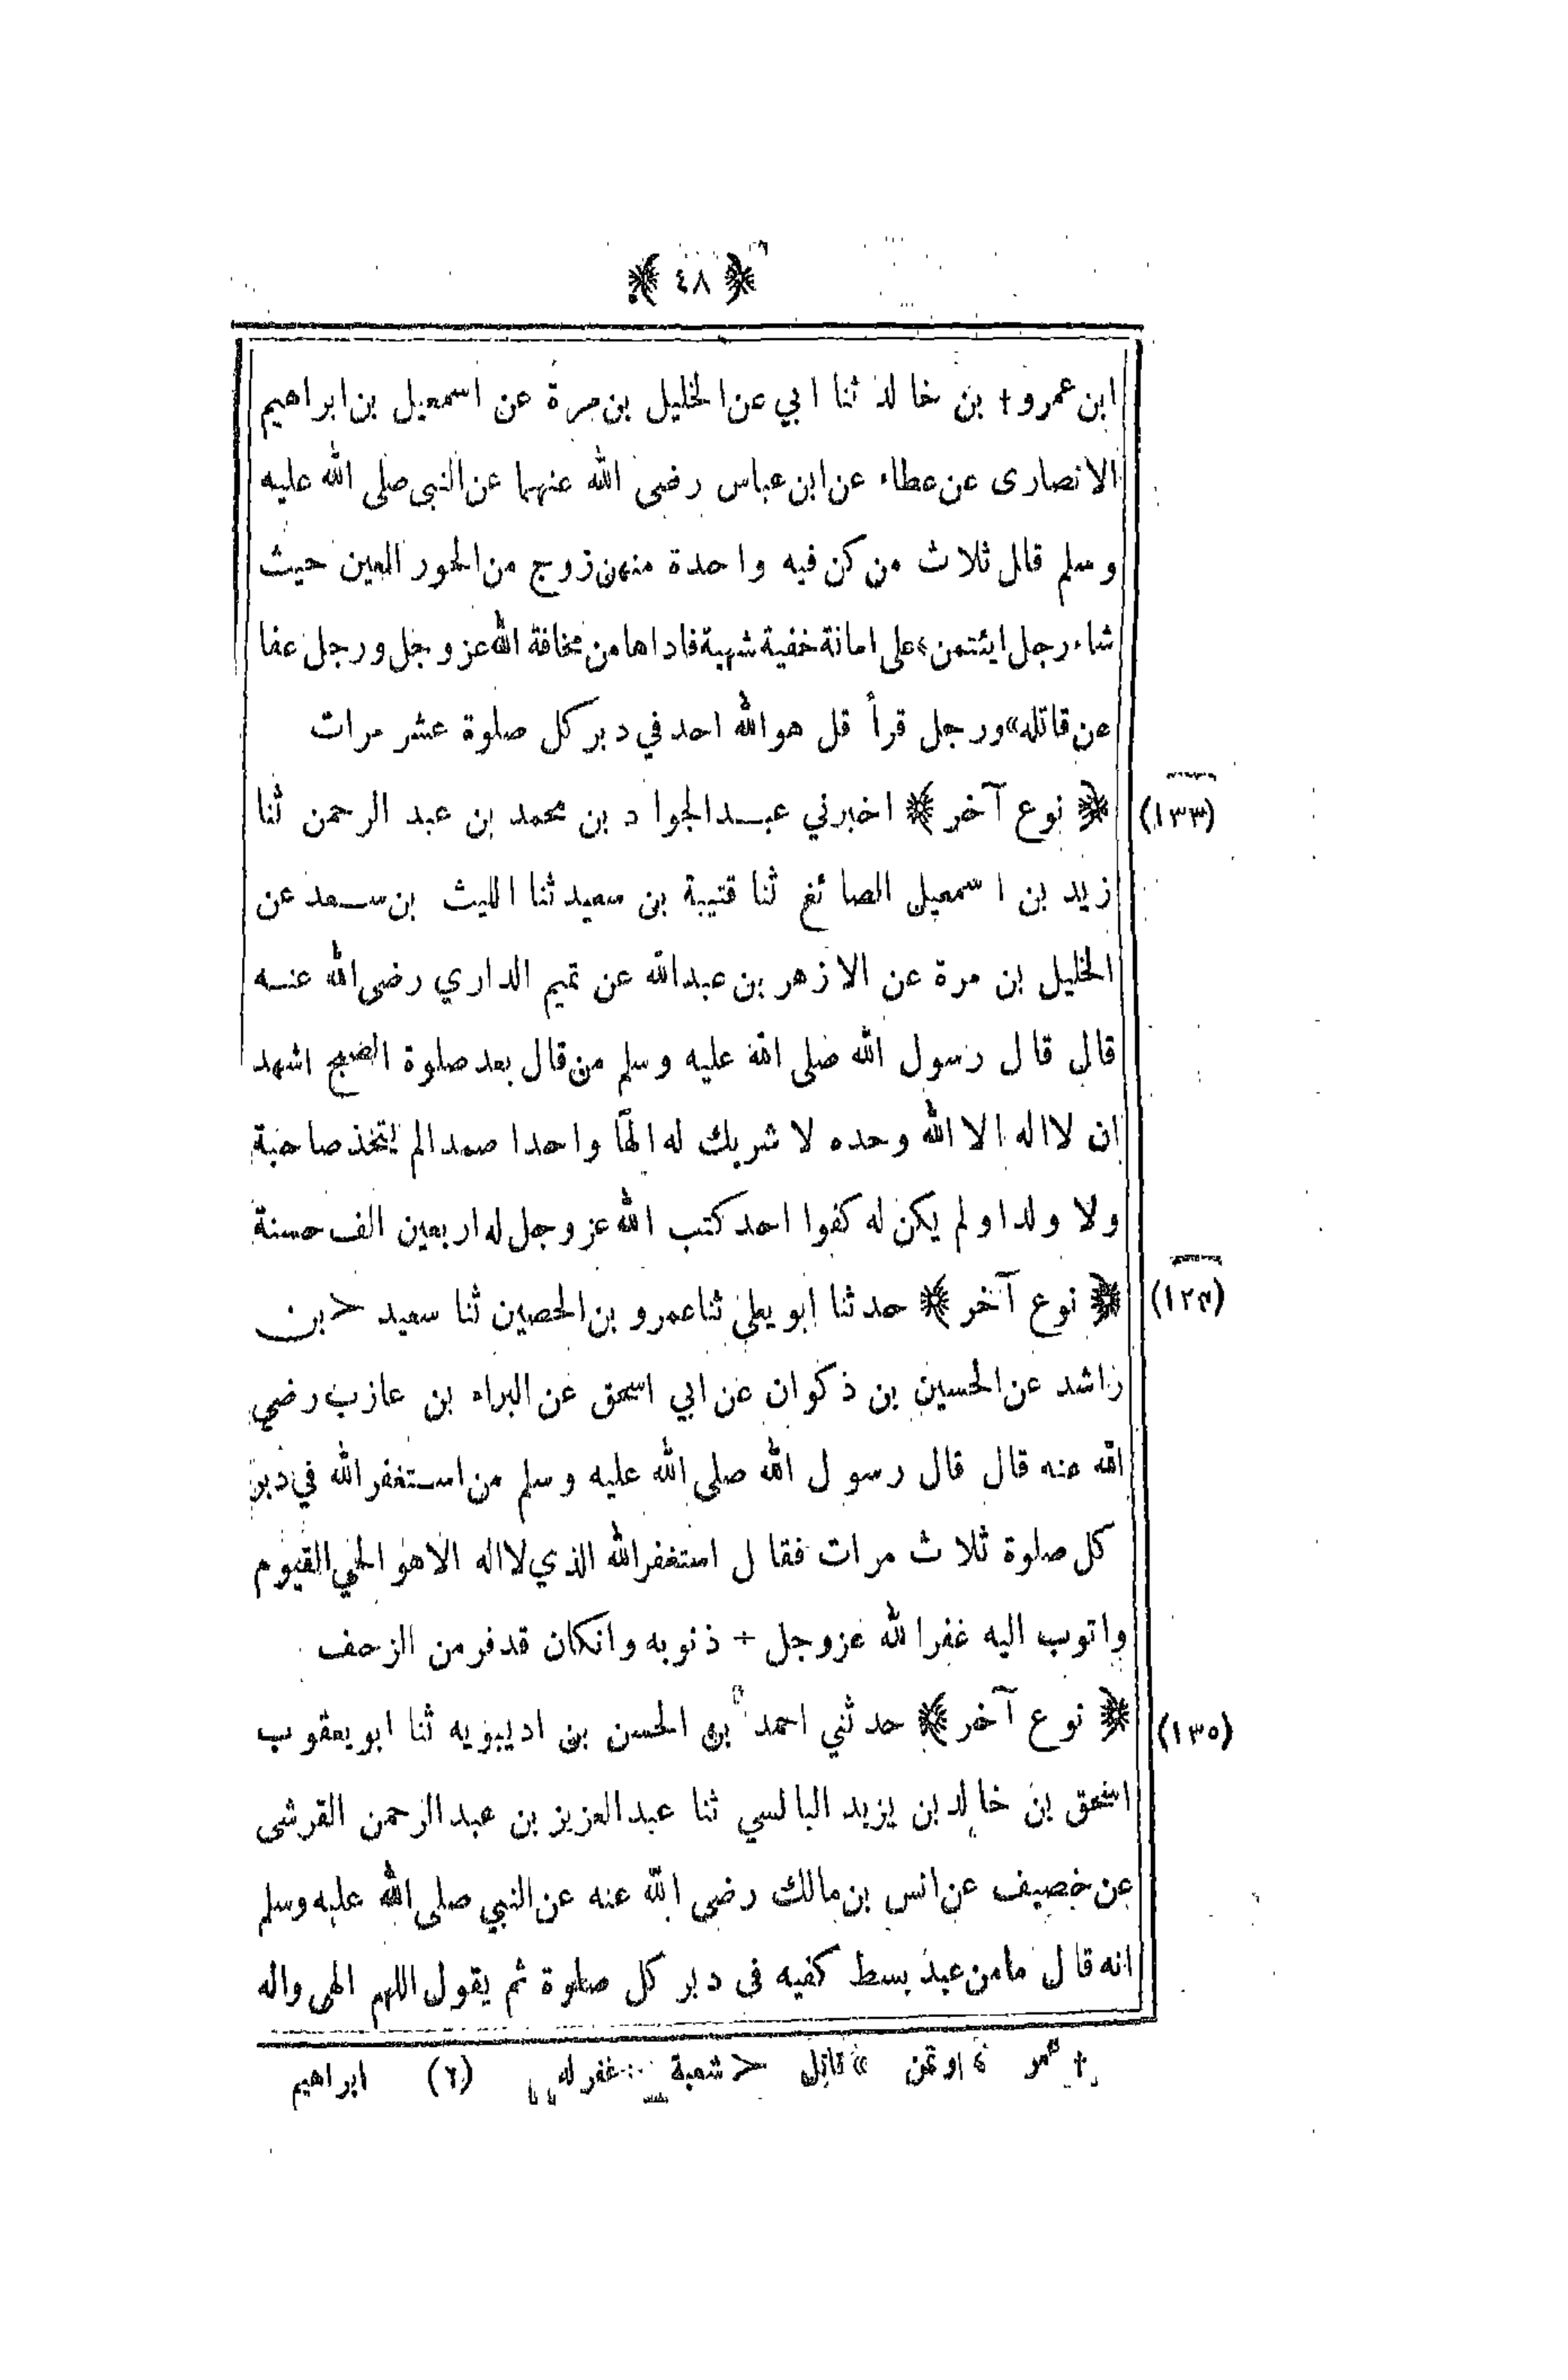 ﴿ ٤٨ ﴾
ابن عمرو † بن خالد ثنا ابي عن الخليل بن مرة عن اسمعيل بن ابراهيم
الانصارى عن عطاء عن ابن عباس رضى الله عنهما عن النبي صلى الله عليه
وسلم قال ثلاث من كن فيه واحدة منهن زوج من الحور العين حيث
شاء رجل ايئتمن ؛ على امانة خفية شهية فاداها من مخافة الله عز وجل ورجل عفا
عن قاتله » ورجل قرأ قل هو الله احد في دبر كل صلوة عشر مرات
﴿ نوع آخر ﴾ اخبرني عبد الجواد بن محمد بن عبد الرحمن ثنا (١٣٣)
زيد بن اسمعيل الصائغ ثنا قتيبة بن سعيد ثنا الليث بن سعد عن
الخليل بن مرة عن الازهر بن عبدالله عن تميم الداري رضى الله عنه
قال قال رسول الله صلى الله عليه وسلم من قال بعد صلوة الصبح اشهد
ان لا اله الا الله وحده لا شريك له الهًا واحدا صمدا لم يتخذ صاحبة
ولا ولدا ولم يكن له كفوا احد كتب الله عز وجل له اربعين الف حسنة
﴿ نوع آخر ﴾ حدثنا ابو يعلى ثنا عمرو بن الحصين ثنا سعيد > بن (١٣٤)
راشد عن الحسين بن ذكوان عن ابي اسحق عن البراء بن عازب رضي
الله عنه قال قال رسول الله صلى الله عليه وسلم من استغفر الله في دبر
كل صلوة ثلاث مرات فقال استغفر الله الذي لا اله الا هو الحي القيوم
واتوب اليه غفر الله عز وجل ÷ ذنوبه وانكان قد فر من الزحف
﴿ نوع آخر ﴾ حدثني احمد بن الحسن بن اديبويه ثنا ابو يعقوب (١٣٥)
اسحق بن خالد بن يزيد البالسي ثنا عبد العزيز بن عبد الرحمن القرشى
عن خصيف عن انس بن مالك رضى الله عنه عن النبي صلى الله عليه وسلم
انه قال ما من عبد بسط كفيه فى دبر كل صلوة ثم يقول اللهم الهى واله
† عمر ؛ اوتمن » قاتل > شعبة ÷ غفر له (٢) ابراهيم